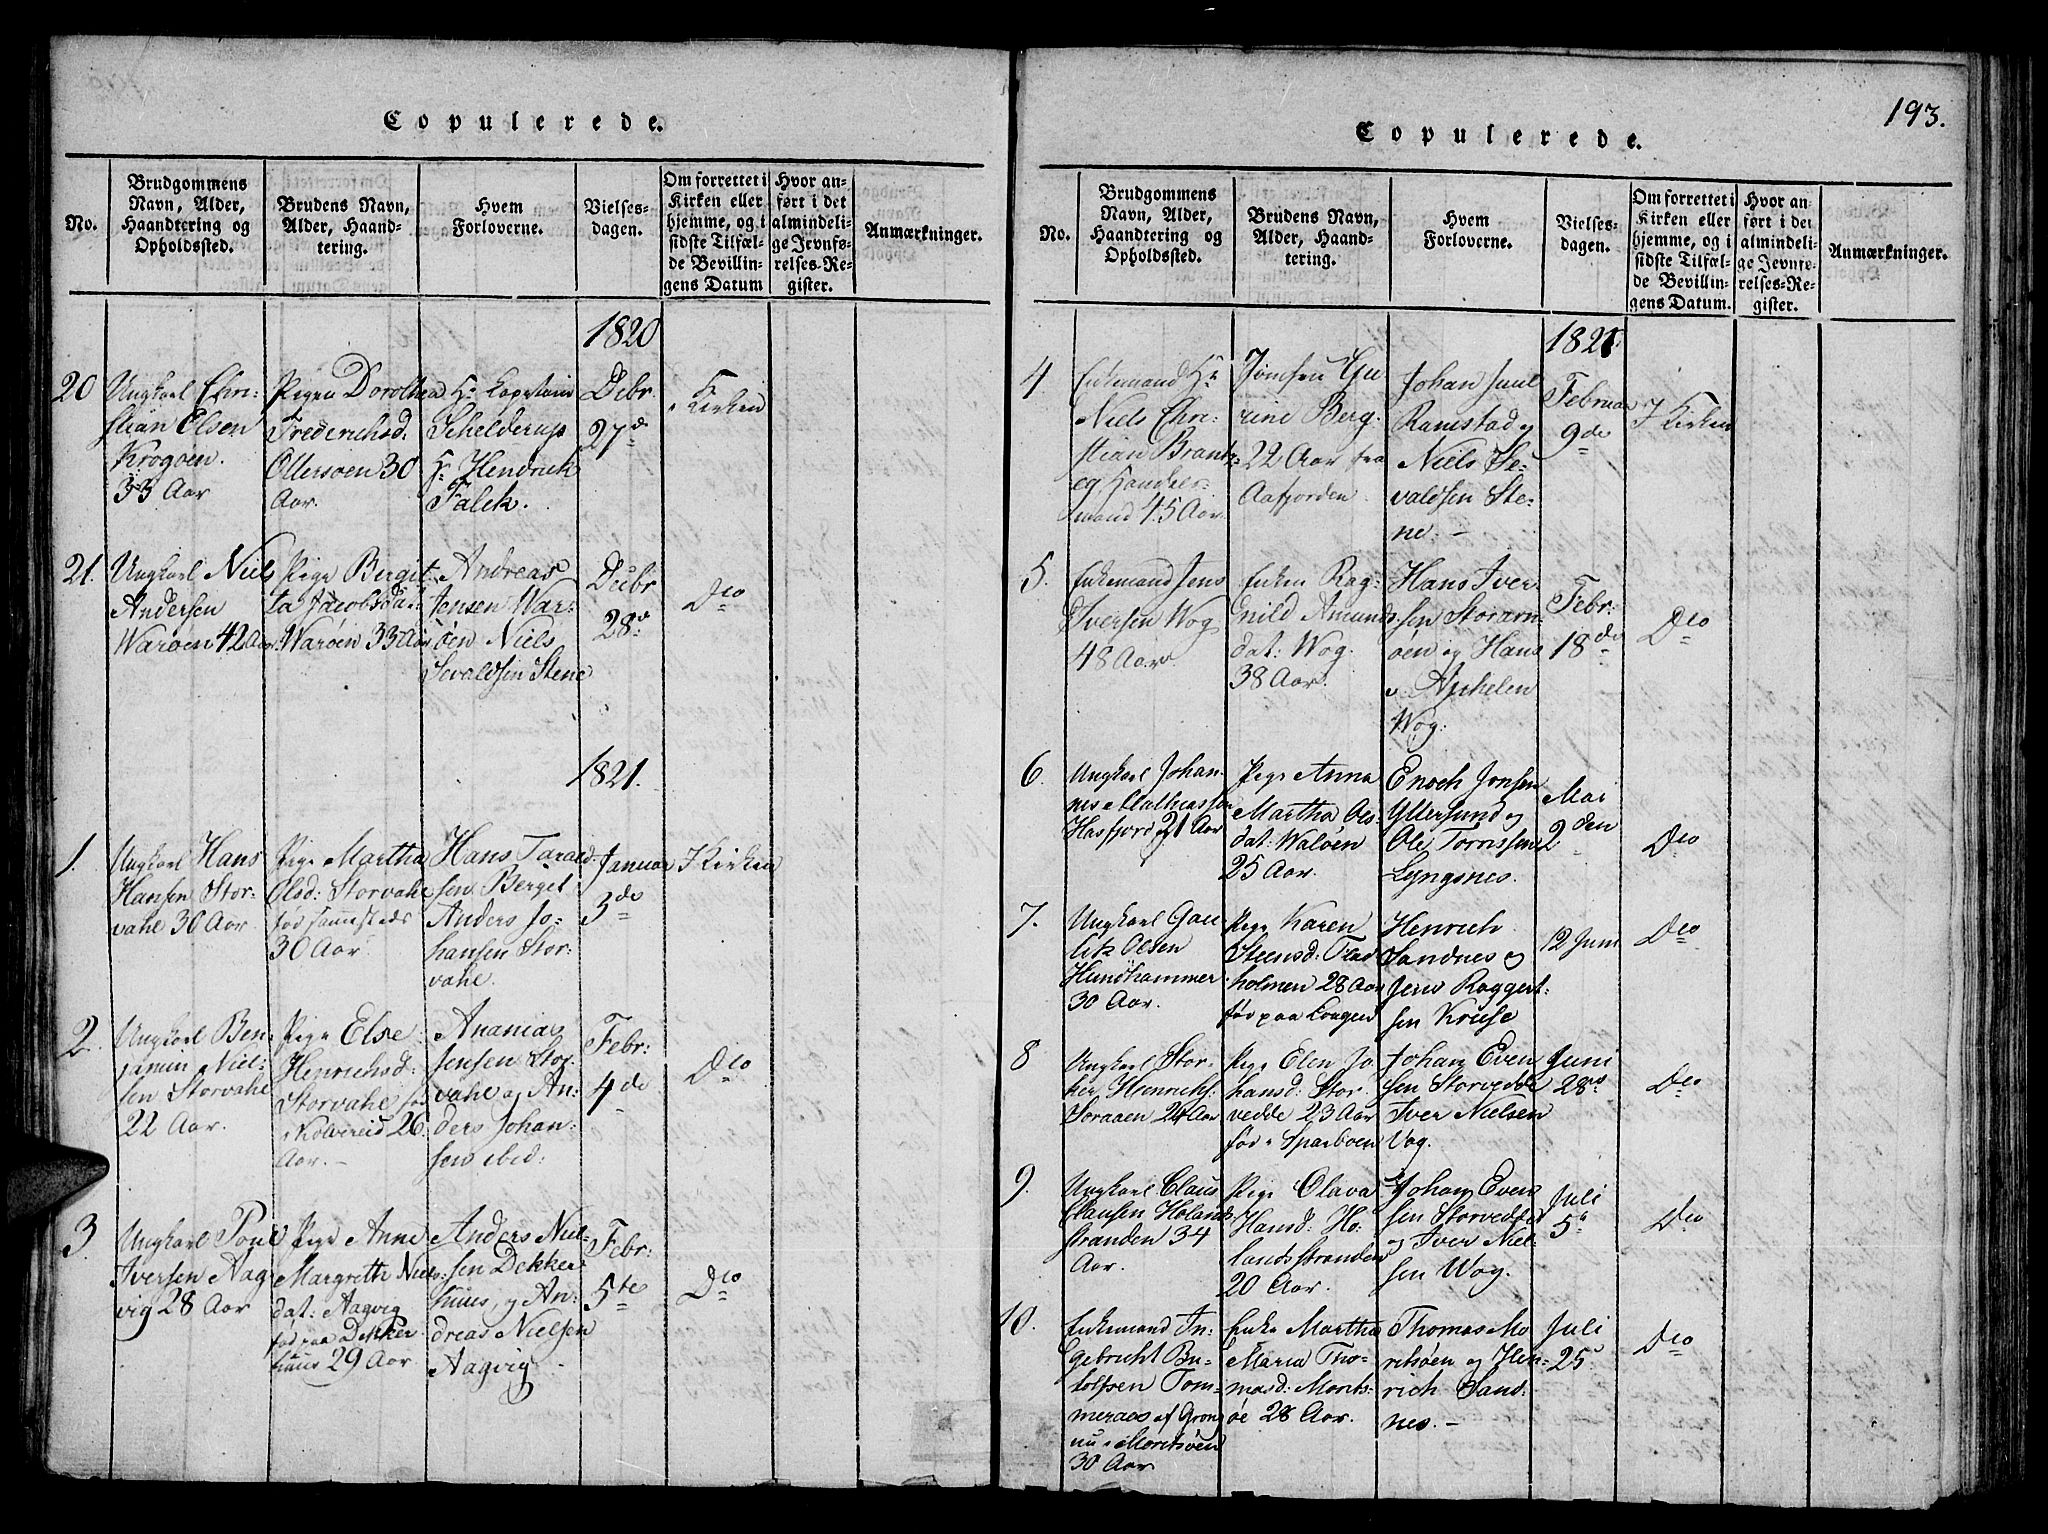 Copulerede.
No.
Brudgommens
Navn, Alder,
Haandtering og
Opholdssted.
Brudens Navn,
Alder, Haand-
tering.
Hvem
Forloverne.
Vielses-
dagen.
Om forrettet i
Kirken eller
hjemme, og i
sidste Tilfæl-
de Bevillin-
gens Datum
Hvor an-
ført i det
almindeli-
ge Jevnfø-
relses-Re-
gister.
Anmærkninger.
1820
20
Ungkarl Chri-
stian Elsen
Krogøen.
33 Aar
Pigen Dorothea
Frederichsd.
Ottersøen 30
Aar.
Hr Kapetain
Schelderup
Hr Hendrick
Falck.
Debr
27de
i Kirken
21.
Ungkarl Niels
Andersen
Warøen 42 Aar
Pige Bergit-
ta Jacobsdat:
Warøen 33 Aar
Andreas
Jensen War-
øen Niels
Sevaldsen Stene
Decbr
28de
Do
1821.
1.
Ungkarl Hans
Hansen Stor-
vahl 30 Aar
Pige Martha
Olsd: Storvahl
fød sammesteds
30 Aar.
Hans Tarald-
sen Berget
Anders Jo-
hansen Stor-
vahl.
Januar
3de
I Kirken
2.
Ungkarl Ben-
jamin Niel-
sen Storvahl
22 Aar.
Pige Else
Henrichsd:
Storvahl fød
i Kolvereid 26
Aar.
Ananias
Jensen Stor-
vahl og An-
ders Johan-
sen ibid:
Febr:
4de
Do
3.
Ungkarl Poul
Iversen Aag-
vig 28 Aar
Pige Anne
Margreth Niels-
dat: Aagvig
fød paa Dekker-
huus 29 Aar
Anders Niel-
sen Dekker-
huus, og An-
dreas Nielsen
Aagvig
Febr:
5te
Do
193.
Copulerede.
No.
Brudgommens
Navn, Alder,
Haandtering og
Opholdssted.
Brudens Navn,
Alder, Haand-
tering.
Hvem
Forloverne.
Vielses-
dagen.
Om forrettet i
Kirken eller
hjemme, og i
sidste Tilfæl-
de Bevillin-
gens Datum.
Hvor an-
ført i det
almindeli-
ge Jevnfø-
relses-Re-
gister.
Anmærkninger.
1821.
4
Enkemand Hr
Niels Chri-
stian Brant
eg Handels-
mand 45 Aar.
Jomfru Gu
rine Berg
22 Aar fra
Aafjorden
Johan Juul
Ramstad og
Niels Se-
valdsen Ste-
ne.
Februar
9de
I Kirken
5.
Enkemand Jens
Iversen Wog
48 Aar.
Enken Rag-
nild Amunds
dat: Wog.
38 Aar.
Hans Iver-
sen Storam-
øen og Hans
Wog.
Febr:
18de
Do
6.
Ungkarl Johan-
nes Mathiassen
Hasfjord 21 Aar
Pige Anna
Martha Ols-
dat: Waløen
25 Aar.
Enoch Jonsen
Yttersund og
Ole Tornssen
Lyngsnes.
Mai
2den
Do
7.
Ungkarl Gau-
lik Olsen
Hundhammer
30 Aar.
Pige Karen
Steensd: Flad-
holmen 28 Aar
fød paa Longen
Henrich
Sandnes og
Jens Raggert-
sen Kruse
12 Juni
Do
8
Ungkarl Stor-
ker Henrichs.
Soraaen 24 Aar
Pige Elen Jo-
hansd: Stor-
vedde 23 Aar
fød i Sparboen
Johan Even
sen Storvedde
Iver Nielsen
Vog.
Juni
28de
Do
9.
Ungkarl Claus
Clausen Hølands
stranden 34
Aar.
Pige Olava
Hansd: Ho-
landsstranden
20 Aar.
Johan Even
sen Storvedde
og Iver Niel-
sen Wog.
Juli
5te
Do
10.
Enkemand In-
gebricht Bu-
tolfsen Tom-
meraas af Grong
nu i Moritsøen
30 Aar
Enke Martha
Maria Tho-
masd: Morits-
øe 28 Aar.
Thomas Mo
ritsøen og Hen-
rich Sand-
nes.
Juli
25
Do